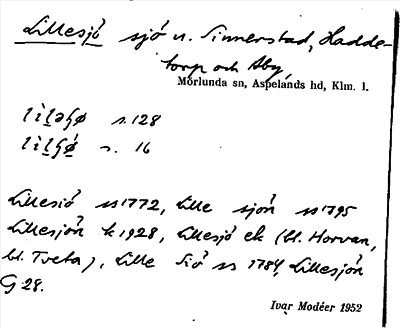 Lillesjö sjö n. Sinnerstad, Hadde-
torp och Aby,
Mörlunda sn, Aspelands hd, Klm. l.
s. 128
s. 16
Lillesiö ss 1772, Lille sjön ss 1795
Lillesjön k 1928, Lillesjö ek (bl. Horvan,
bl. Tveta), Lille Siö ss 1784, Lillesjön
G 28.
Ivar Modéer 1952